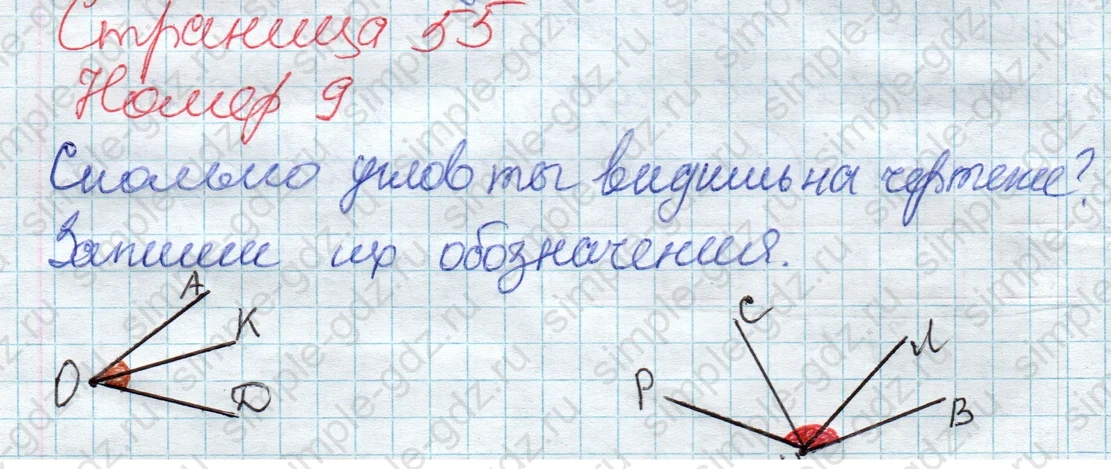 Страница 55
Номер 9
Сколько углов ты видишь на чертеже?
Запиши их обозначения.
А
К
О
D
С
М
Р
В
simple-gdz.ru